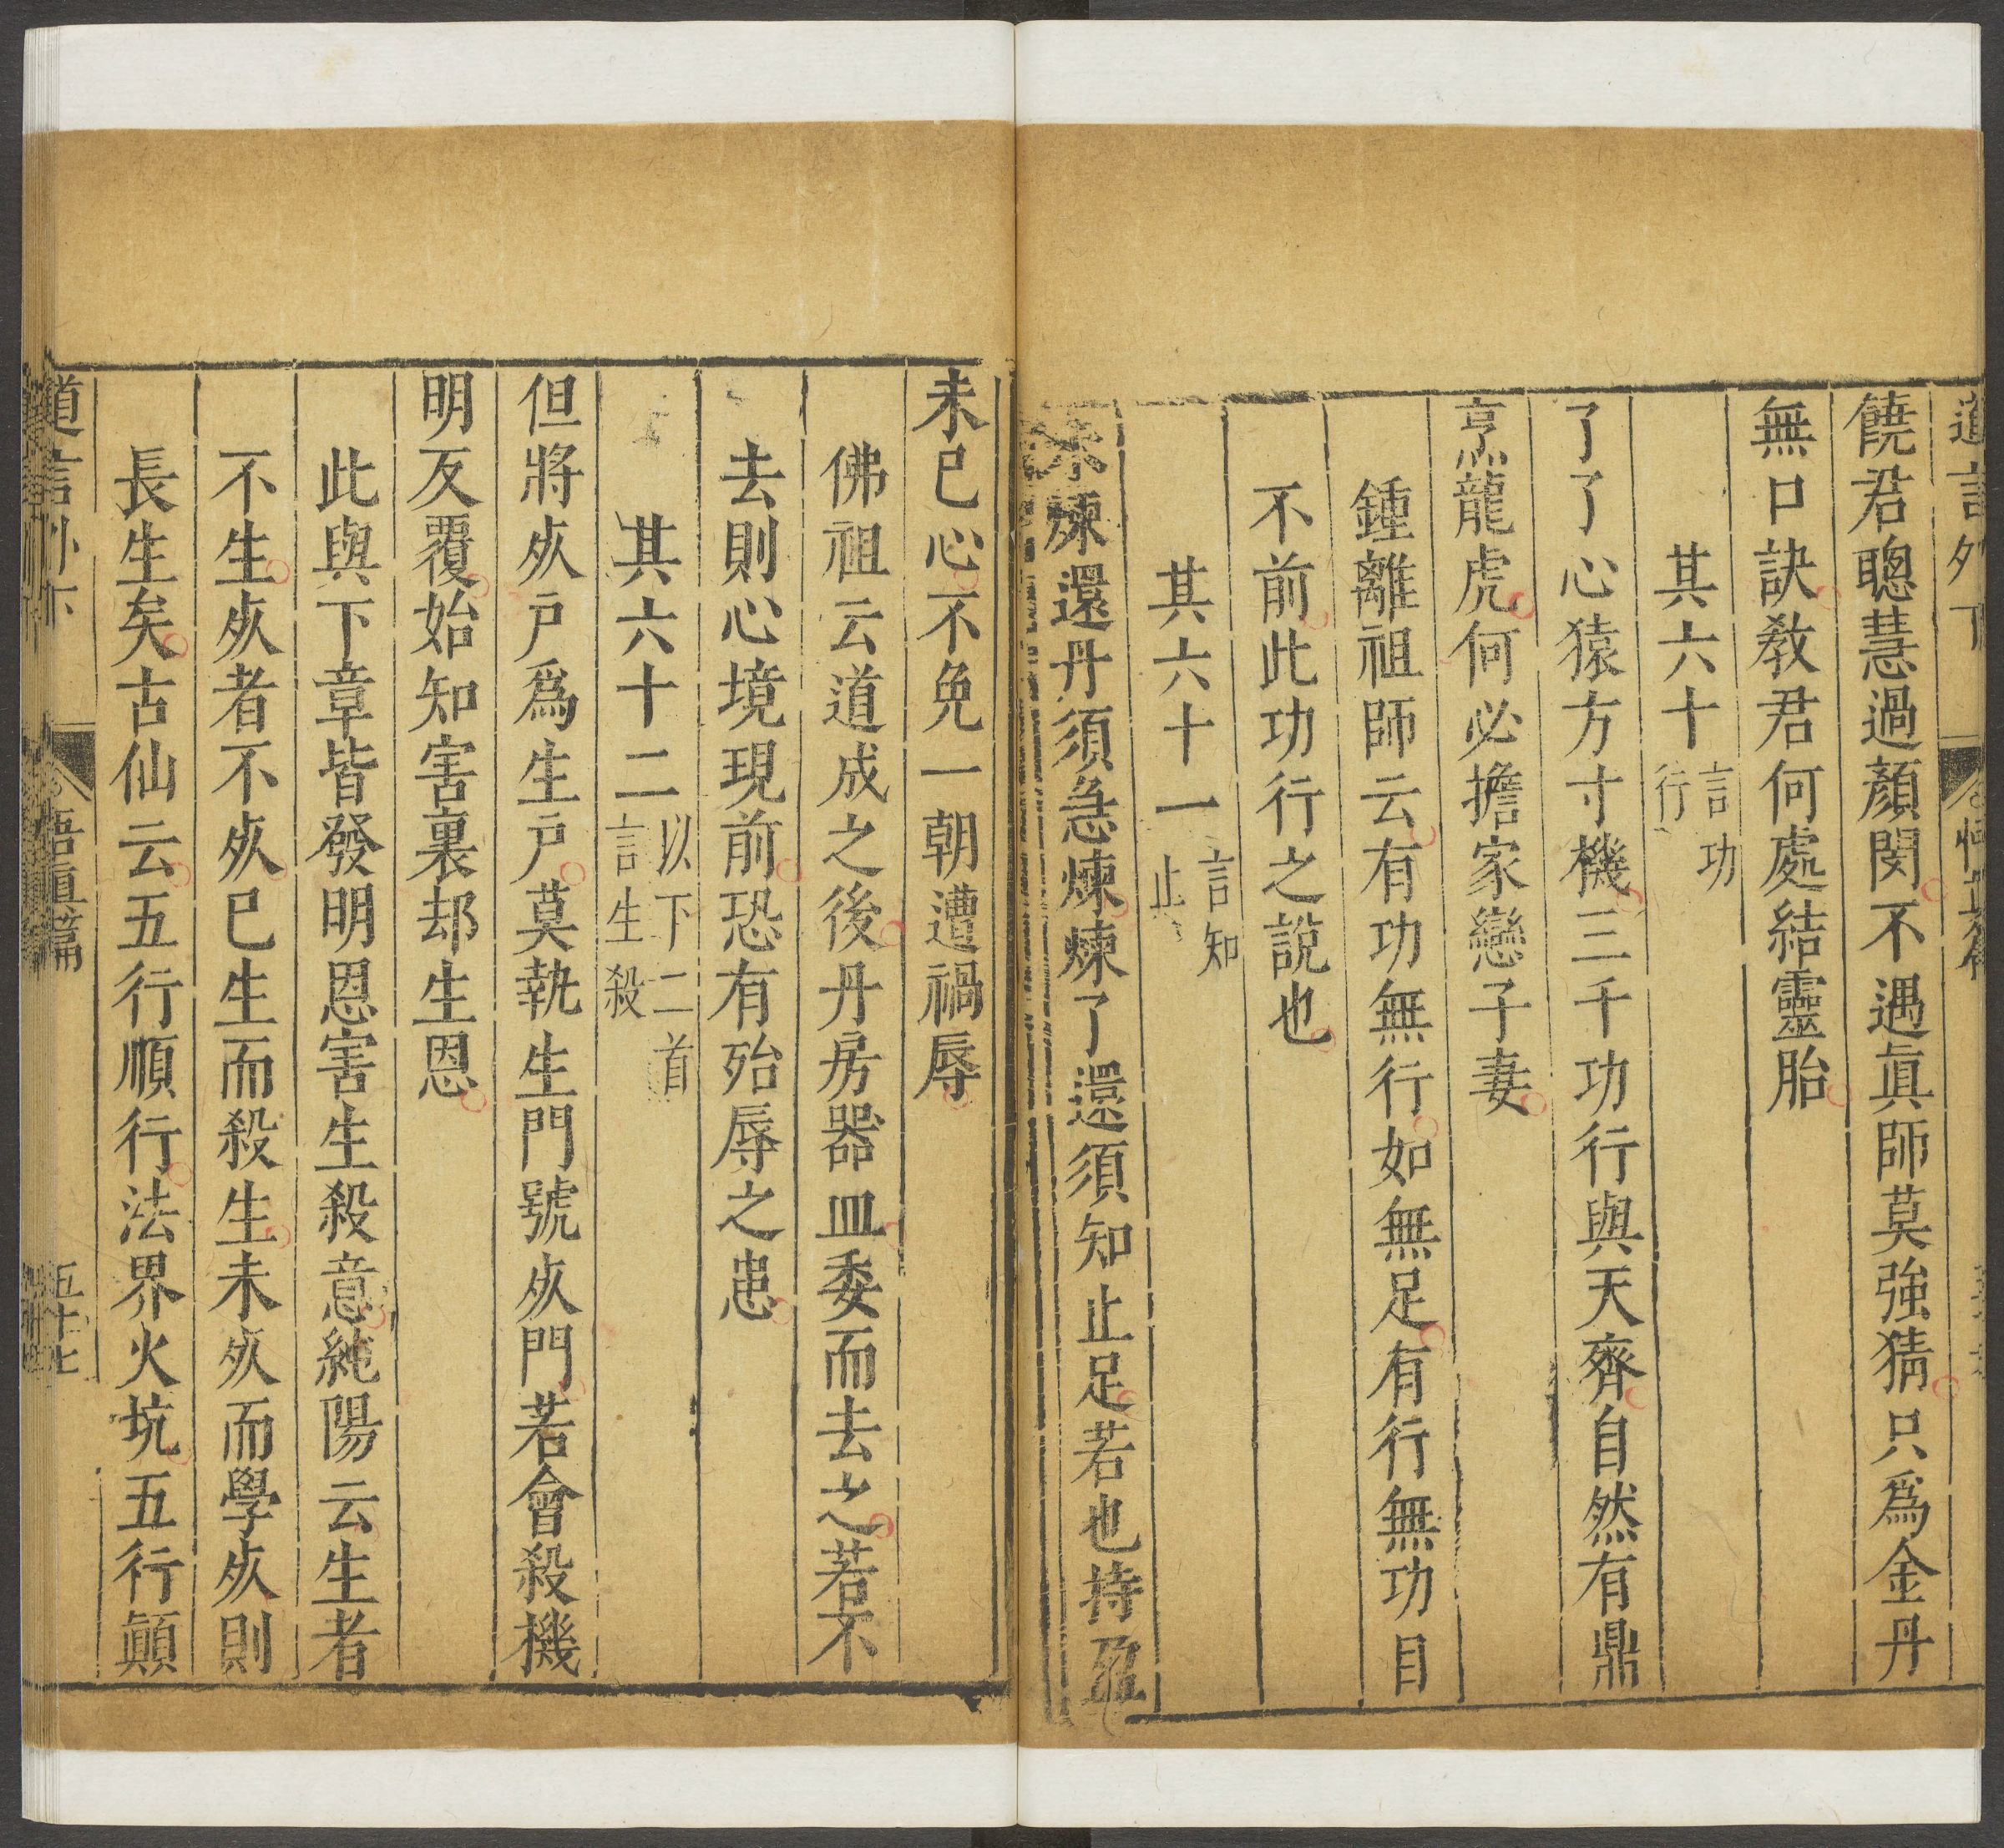 道言外下
悟真篇
饒君聰慧過顏閔不遇眞師莫強猜只爲金丹
無口訣教君何處結靈胎
其六十 言功行
了了心猿方寸機三千功行與天齊自然有鼎
烹龍虎何必擔家戀子妻
鍾離祖師云有功無行如無足有行無功目
不前此功行之說也
其六十一 言知止
未煉還丹須急煉煉了還須知止足若也持盈
未已心不免一朝遭禍辱
佛祖云道成之後丹房器皿委而去之若不
去則心境現前恐有殆辱之患
其六十二 以下二首言生殺
但將㱙戸爲生戸莫執生門號㱙門若會殺機
明反覆始知害裏却生恩
此與下章皆發明恩害生殺意純陽云生者
不生㱙者不㱙已生而殺生未㱙而學㱙則
長生矣古仙云五行順行法界火坑五行顚
道言外下
悟眞篇
五十七